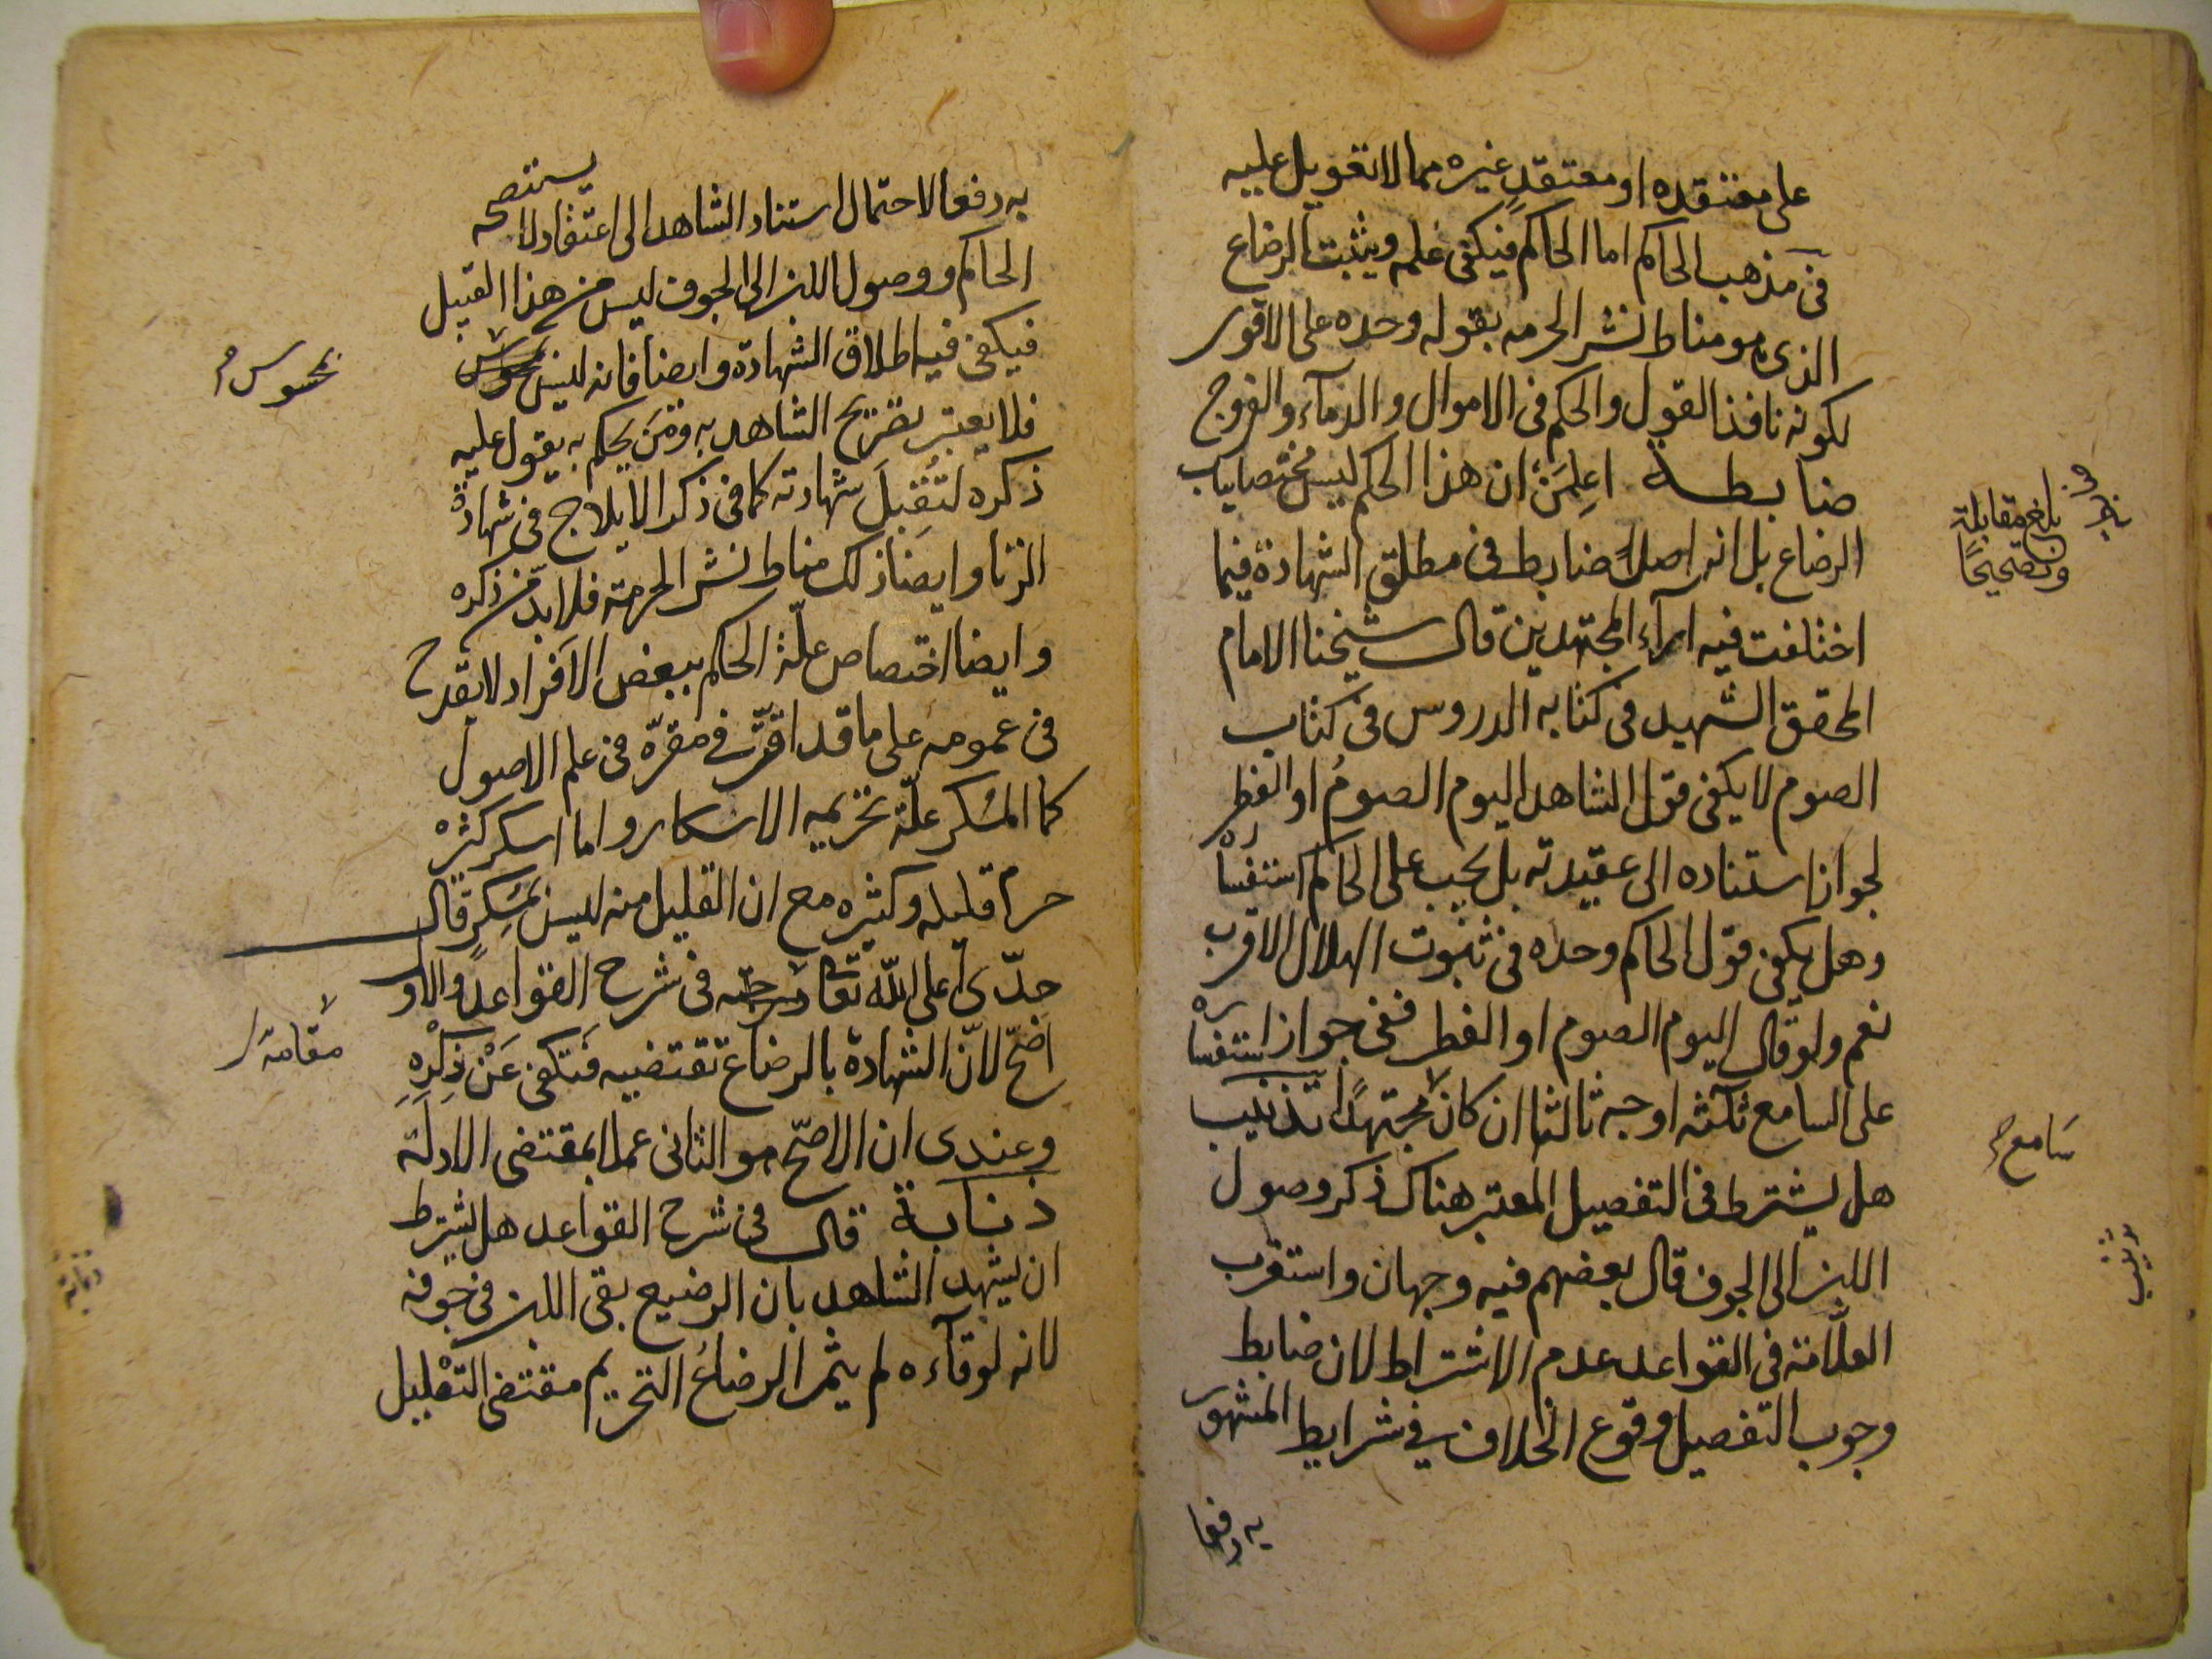 على معتقده او معتقد غيره مما لا تعويل عليه
فى مذهب الحاكم اما الحاكم فيكفى علمه ويثبت الرضاع
الذى هو مناط نشر الحرمه بقوله وحده على الاقوى
لكونه نافذ القول والحكم فى الاموال والدمآء والفروج
ضابطة اعلمن ان هذا الحكم ليس مختصا بباب
الرضاع بل انه اصل ضابط فى مطلق الشهادة فيما
اختلفت فيه آراء المجتهدين قال شيخنا الامام
المحقق الشهيد فى كتابه الدروس فى كتاب
الصوم لا يكفى قول الشاهد اليوم الصوم او الفطر
لجواز استناده الى عقيدته بل يجب على الحاكم استفساره
وهل يكفى قول الحاكم وحده فى ثبوت الهلال الاقرب
نعم ولو قال اليوم الصوم او الفطر ففى جواز استفساره
على السامع ثلثة اوجه ثالثها ان كان مجتهدا تذنيب
هل يشترط فى التفصيل المعتبر هناك ذكر وصول
اللبن الى الجوف قال بعضهم فيه وجهان واستقرب
العلّامة فى القواعد عدم الاشتراط لان ضابط
وجوب التفصيل وقوع الخلاف في شرايط المشهور
به دفعا
بلغ مقابلة
وتصحيحًا
سامع
تذنيب
به دفعا لاحتمال استناد الشاهد الى اعتقاد لا يستصحه
الحاكم ووصول اللبن الى الجوف ليس من هذا القبيل
فيكفى فيه اطلاق الشهادة وايضا فانه ليس بمحسوس
فلا يعتبر تصريح الشاهد به ومن يحكم به يقول عليه
ذكره لتقبل شهادته كما فى ذكر الايلاج فى شهادة
الزنا وايضا ذلك مناط نشر الحرمة فلا بدّ من ذكره
وايضا اختصاص علّة الحاكم ببعض الافراد لا يقدح
فى عمومه على ما قد اقرّ في مقرّه فى علم الاصول
كما المسكر علّة تحريمه الاسكار واما اسكر كثره
حرم قليله وكثيره مع ان القليل منه ليس بمسكر قال
جدّى اعلى اللّه تعا درجته فى شرح القواعد والاول
اصحّ لانّ الشهادة بالرضاع تقتضيه فتكفى عن ذكره
وعندى ان الاصحّ هو الثانى عملا بمقتضى الادلة
ذنابة قال فى شرح القواعد هل يشترط
ان يشهد الشاهد بان الرضيع بقى اللبن فى جوفه
لانه لو قآءه لم يثمر الرضاعُ التحريم مقتضى التعليل
بمحسوس
مقامه
ذنابة